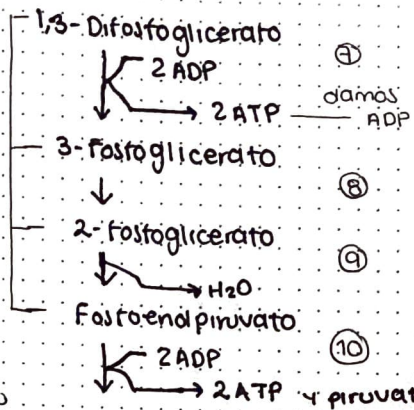 1,3-Difosfoglicerato
⑦
2 ADP
2 ATP — damos ADP
3-fosfoglicerato
⑧
2-fosfoglicerato
⑨
H2O
Fosfoenolpiruvato
⑩
2 ADP
2 ATP y piruvat